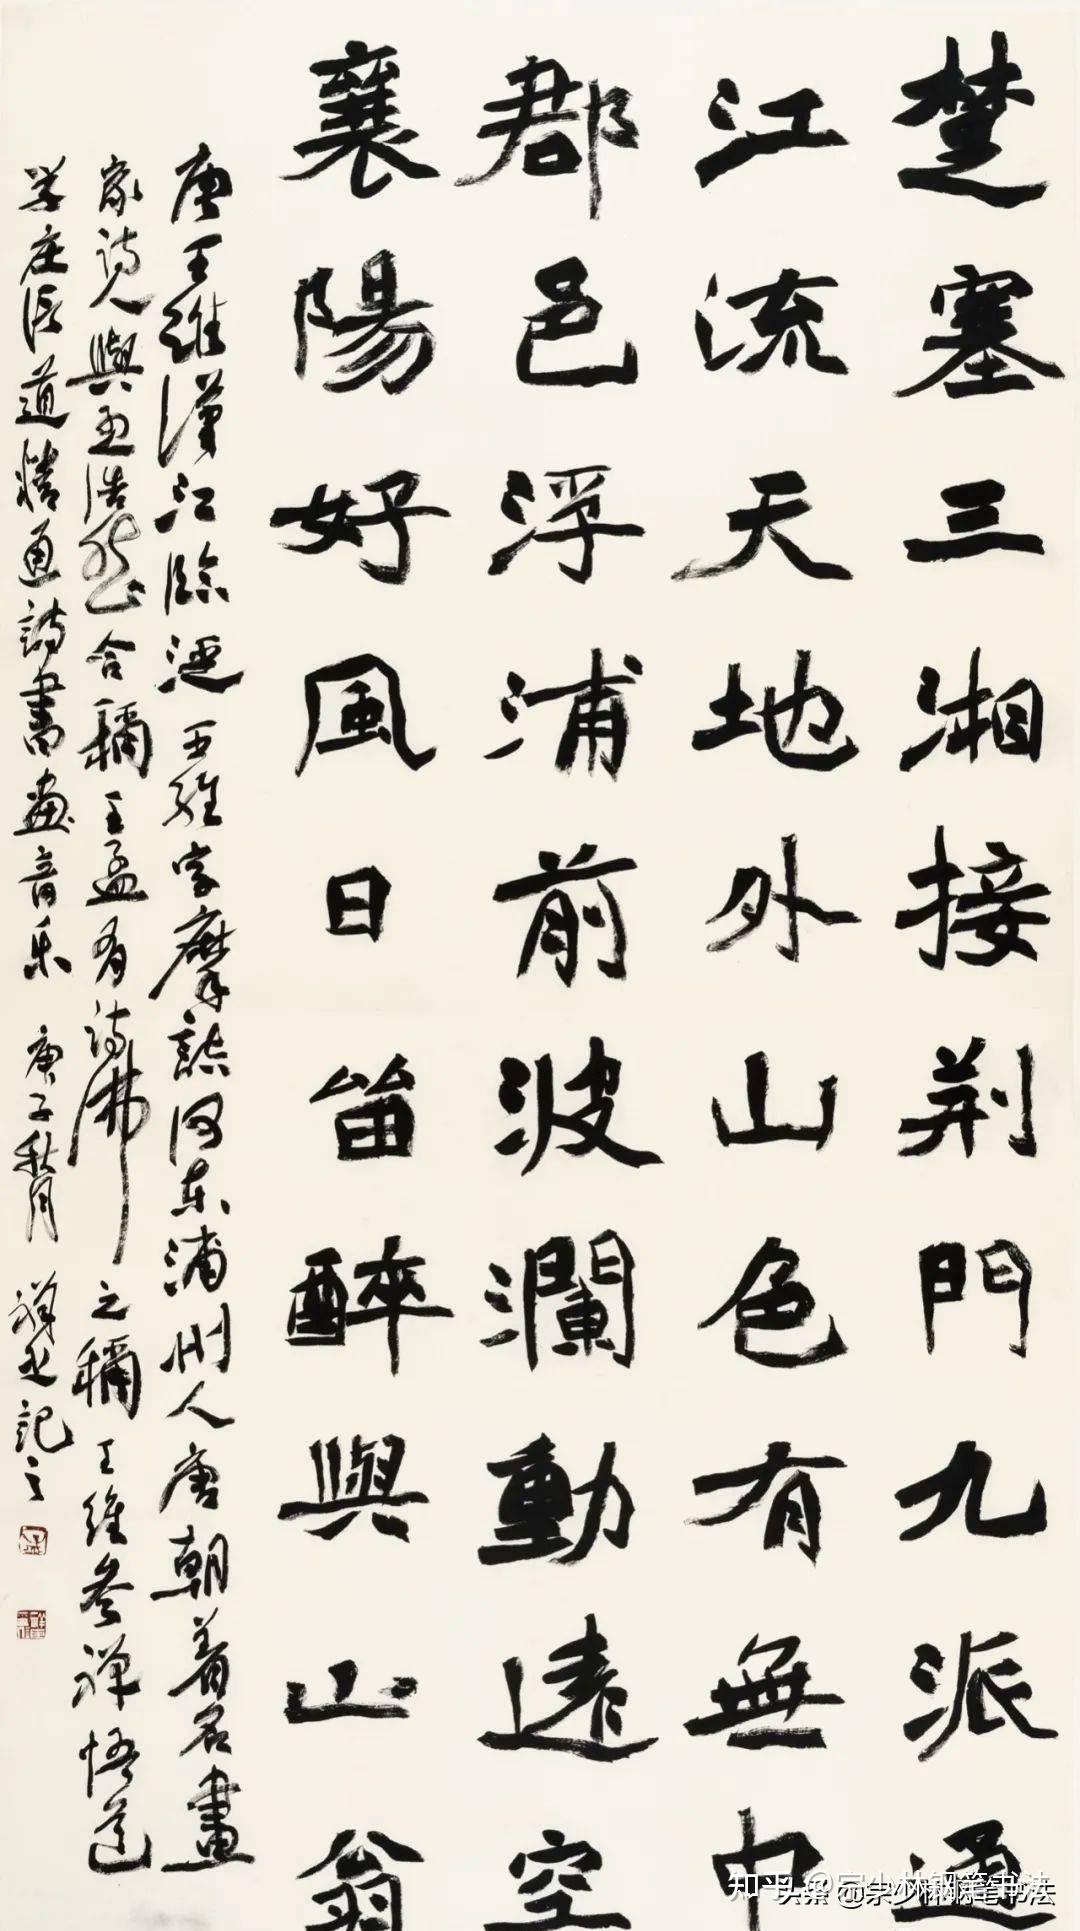 楚塞三湘接荆門九派通
江流天地外山色有無中
郡邑浮浦前波瀾動遠空
襄陽好風日留醉與山翁
唐王維漢江臨泛王維字摩詰河東蒲州人唐朝著名畫
家詩人與孟浩然合稱王孟有詩佛之稱王維參禪悟道
学庄信道精通詩書畫音乐庚子秋月禅之記之
知乎 @宗少林钢笔书法
头条 @宋少林钢笔书法